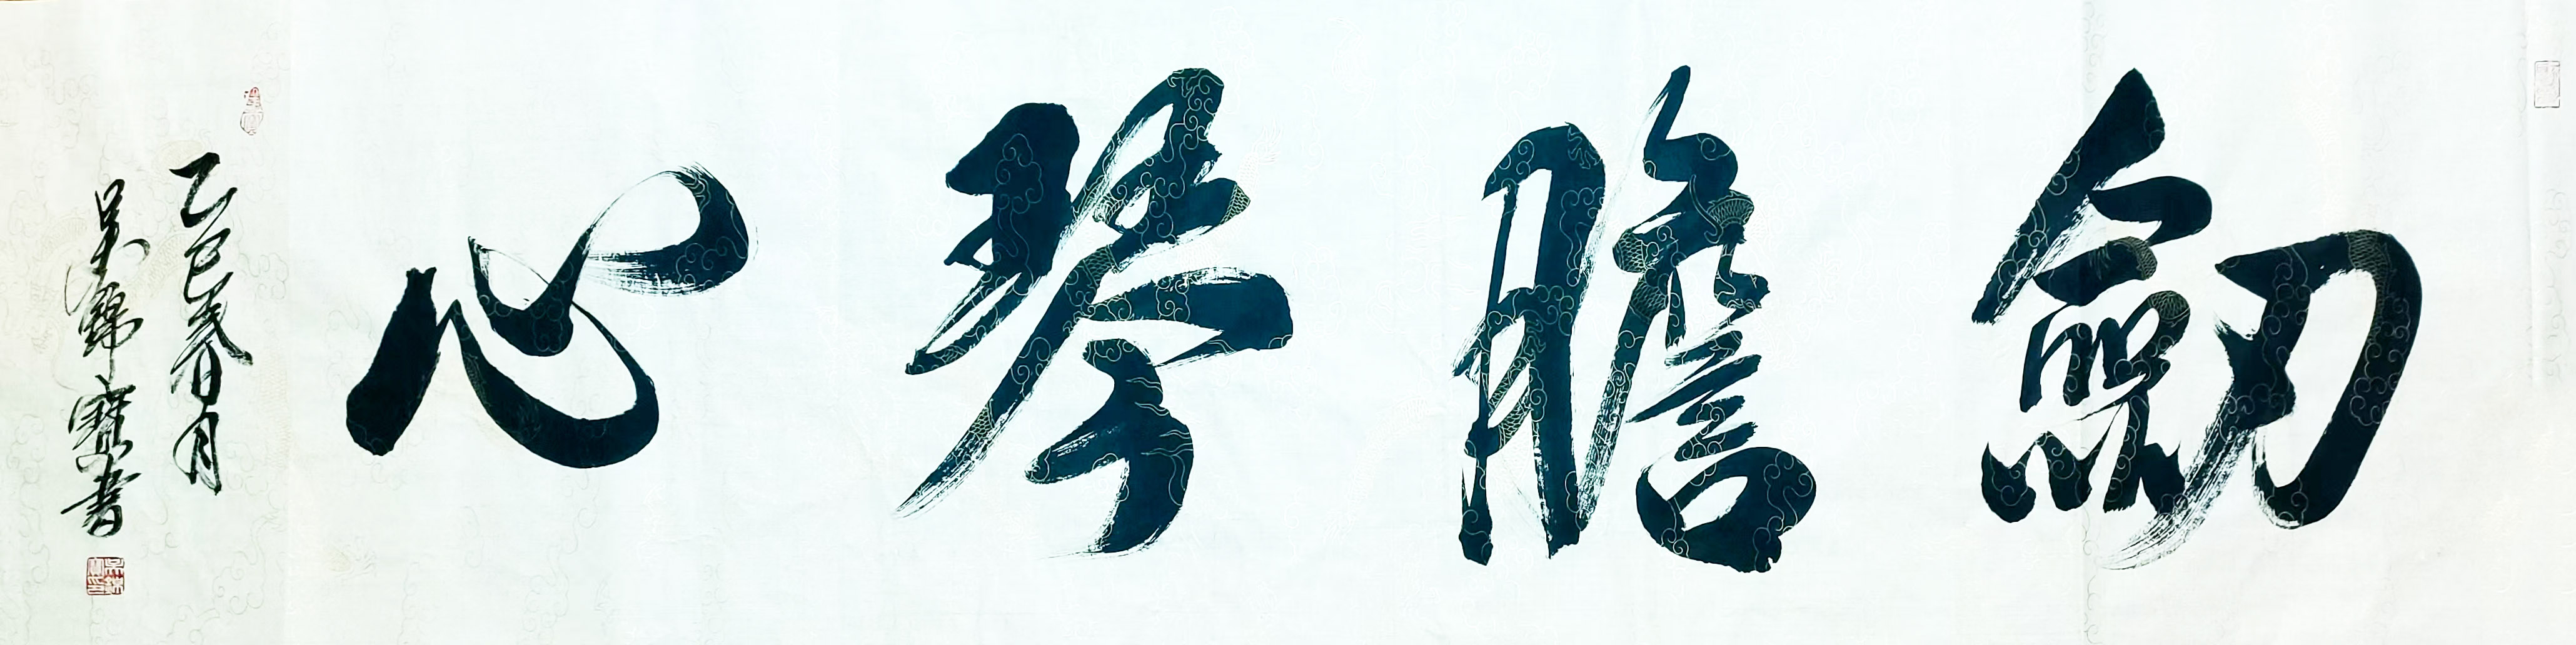 劍膽琴心
乙巳春月
吳錦寶書